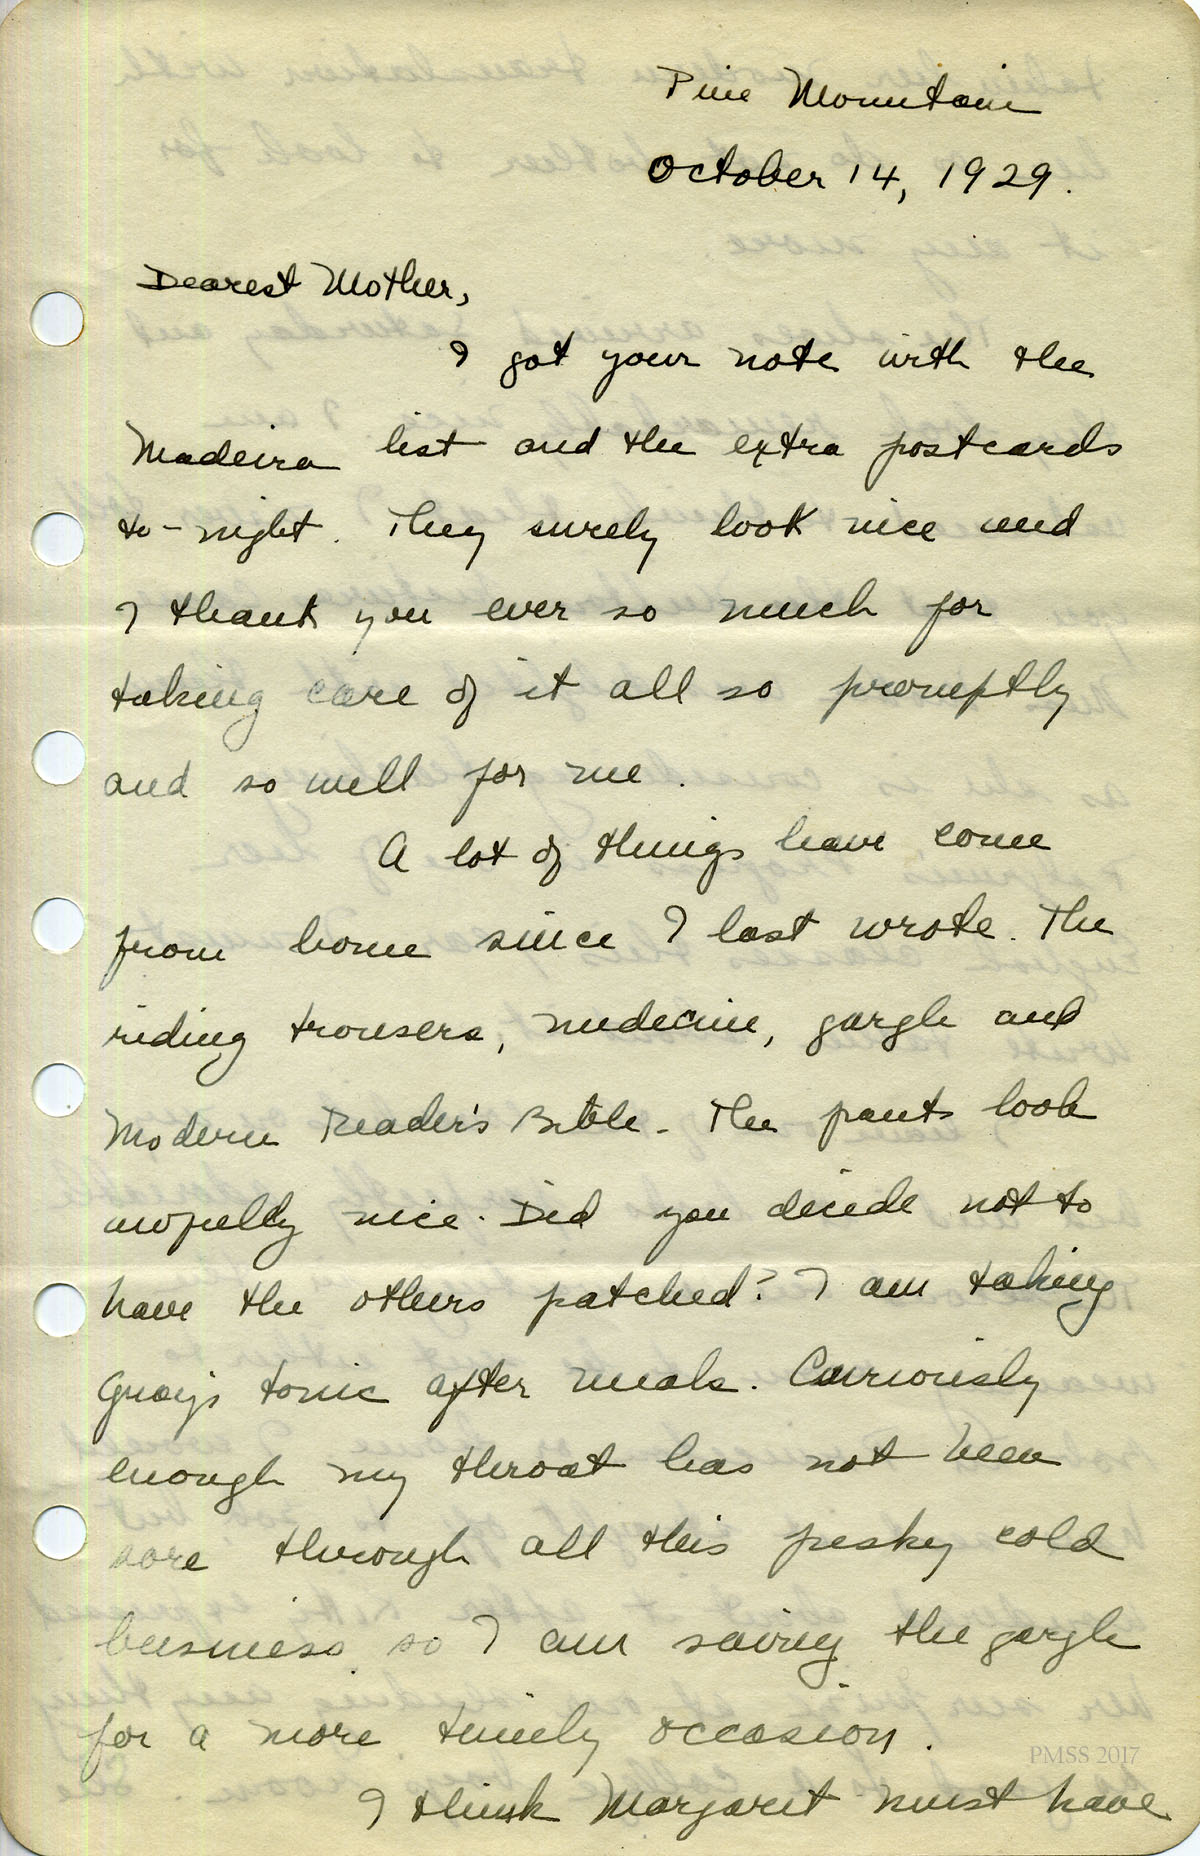 Pine Mountain
October 14, 1929.
Dearest Mother,
I got your note with the
Madeira list and the extra postcards
to-night. They surely look nice and
I thank you ever so much for
taking care of it all so promptly
and so well for me.
A lot of things have come
from home since I last wrote. The
riding trousers, medecine, gargle and
Modern Reader's Bible. The pants look
awfully nice. Did you decide not to
have the others patched? I am taking
Gray's tonic after meals. Curiously
enough my throat has not been
sore through all this pesky cold
business so I am saving the gargle
for a more timely occasion.
PMSS 2017
I think Margaret must have